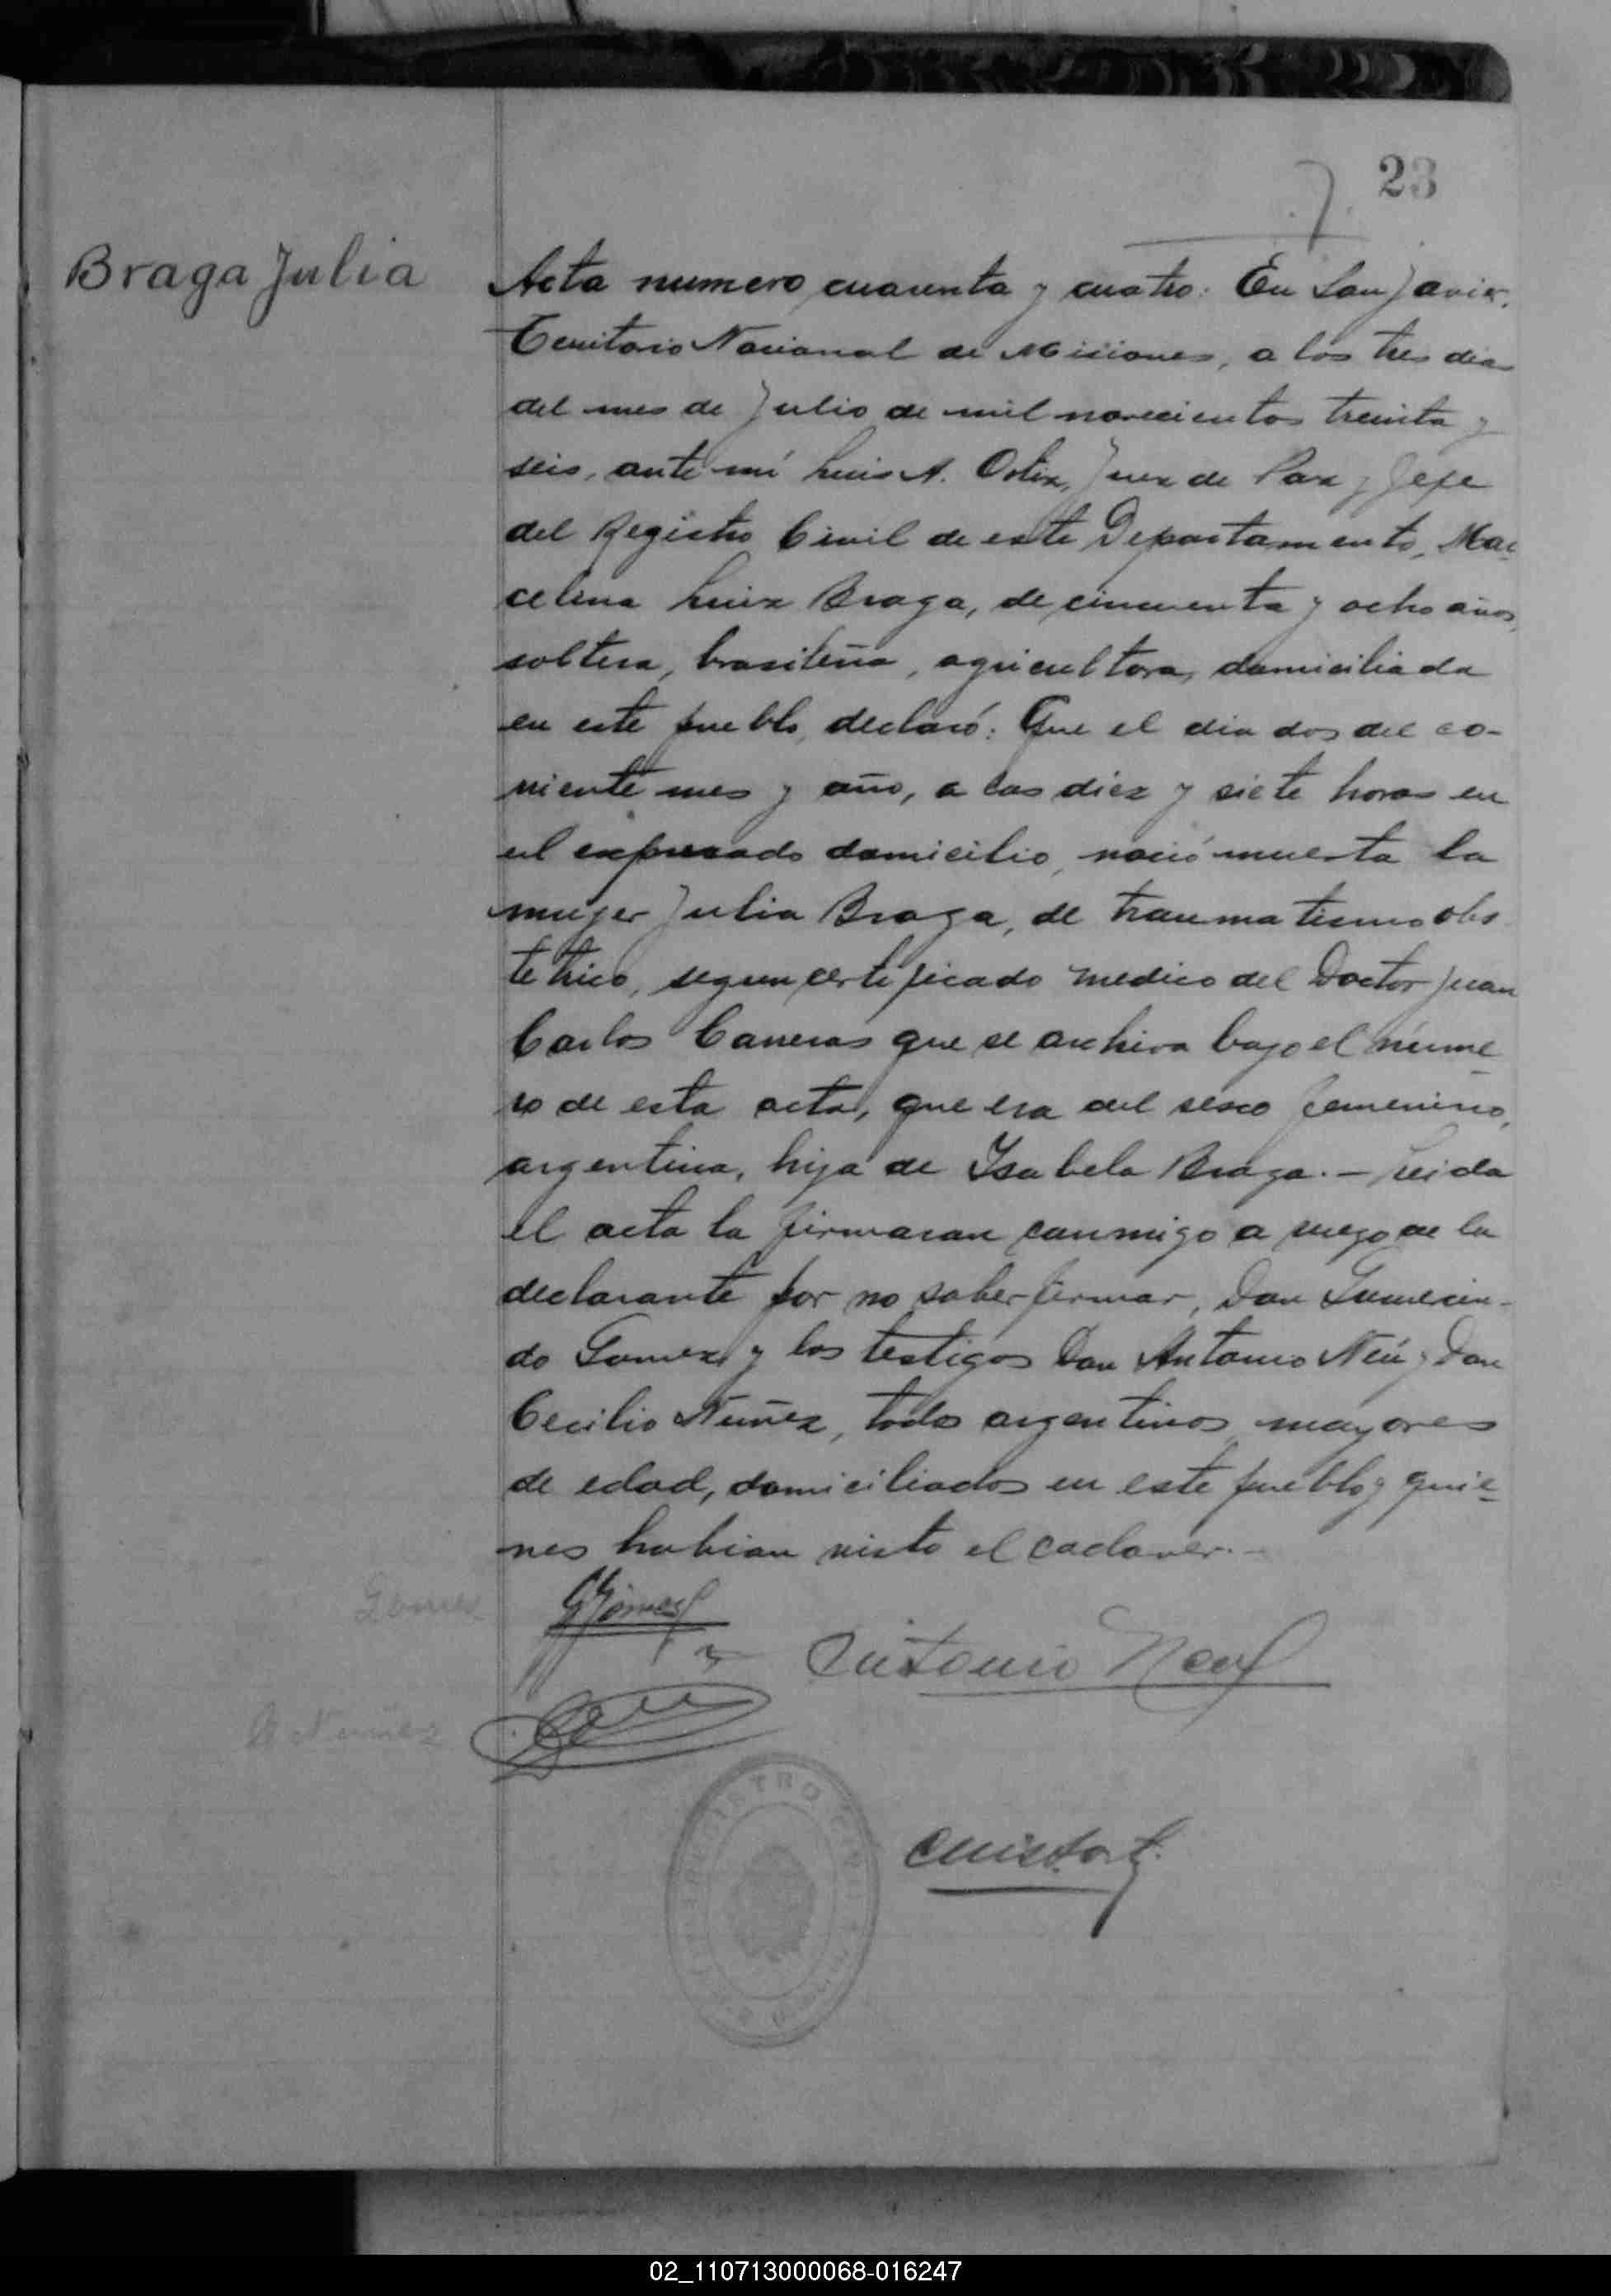 23
7
Braga Julia
Acta numero cuarenta y cuatro: En San Javier,
Territorio Nacional de Misiones, a los tres dias
del mes de Julio de mil novecientos treinta y
seis, ante mi Luis A. Ortiz, Juez de Paz y Jefe
del Registro Civil de este Departamento, Mar
celina Luiz Braga, de cincuenta y ocho años,
soltera, brasileña, agricultora, domiciliada
en este pueblo, declaró: Que el dia dos del co-
rriente mes y año, a las diez y siete horas en
el expresado domicilio, nació muerta la
mujer Julia Braga, de traumatismo obs
tetrico, segun certificado medico del Doctor Juan
Carlos Carreras que se archiva bajo el núme
ro de esta acta, que era del sexo femenino,
argentina, hija de Ysabela Braga.- Leida
el acta la firmaran conmigo a ruego de la
declarante por no saber firmar, Don Gumercin-
do Gomez y los testigos Don Antonio Neú y Don
Cecilio Nuñez, todos argentinos mayores
de edad, domiciliados en este pueblo y quie-
nes habian visto el cadaver.-
Gomez
GGómez
Antonio Neu
Nuñez
02_110713000068-016247